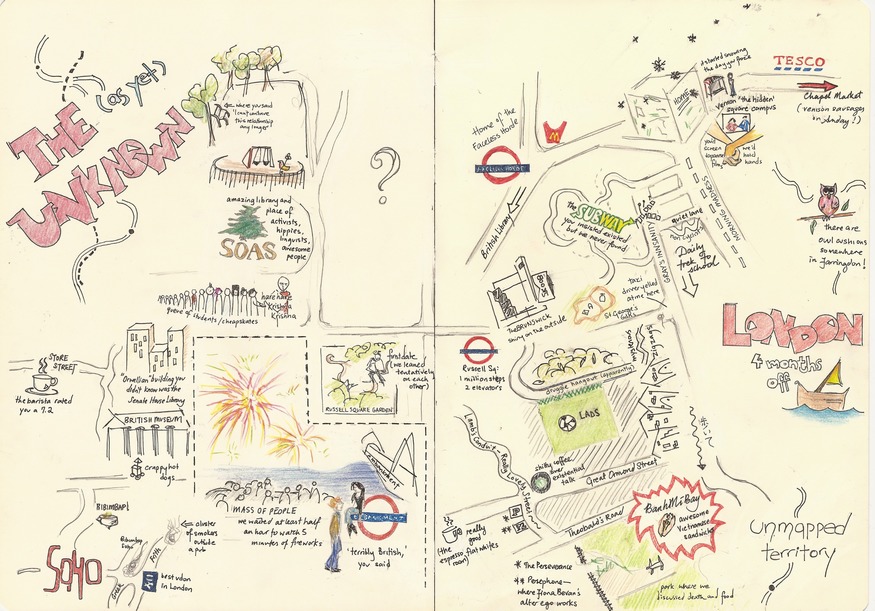 THE
(as yet)
UNKNOWN
where you said
this relationship
any longer"
amazing library and
place of
activists,
hippies,
linguists,
awesome
people
SOAS
hare hare
Krishna
Krishna
queue of students/cheapskates
?
STORE
STREET
the barista rated
you a 7.2
"Orwellian" building you
didn't know was the
Senate House Library
BRITISH MUSEUM
crappy hot
dogs
first date
(we leaned
tentatively
on each
other)
RUSSELL SQUARE GARDEN
MASS OF PEOPLE
we waited at least half
an hour to watch 5
minutes of fireworks
EMBANKMENT
'terribly British,'
you said
BIBIMBAP!
a cluster
of smokers
outside
a pub
Frith
Greek
SOHO
best udon
in London
Home of the
Faceless Horde
M
British Library
HOME
it started snowing
TESCO
Chapel Market
(venison sausages
on Sunday!)
Vernon 'the hidden'
square campus
we'd
hold
hands
MORNING MADNESS
The SUBWAY
you insisted existed
but we never found
quiet lane
GRAY'S INN SANITY
Daily
trek to
school
BOOBS
THE BRUNSWICK
swing on the outside
taxi
driver yelled
at me here
St George's
Russell Sq:
1 million steps
2 elevators
druggie hangout (apparently)
LADS
there are
owl cushions
somewhere
in Farringdon!
LONDON
4 months
off
Lamb's Conduit - Really Lovely Street
shitty coffee
over
existential
talk
Great Ormond Street
Theobald's Road
BanhMiBay
awesome
Vietnamese
sandwich
really
good
flat whites
(the
espresso
room)
* The Perseverance
** Persephone —
where Fiona Bevan's
alter ego works
park where we
discussed death and food
unmapped
territory